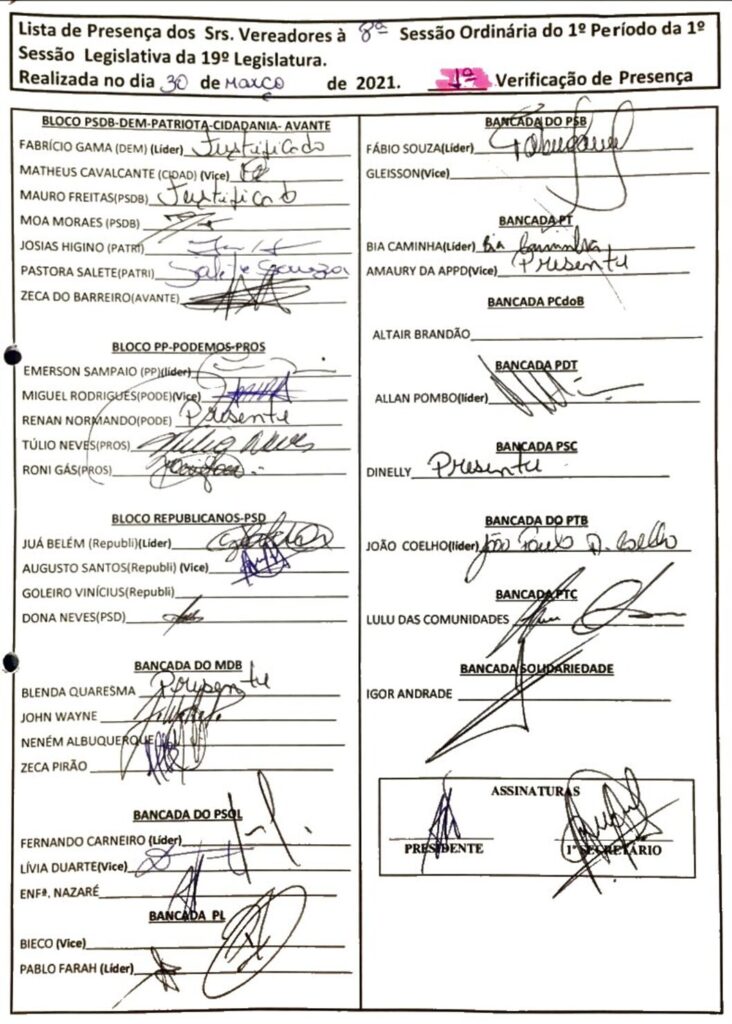 Lista de Presença dos Srs. Vereadores à 8ª Sessão Ordinária do 1º Período da 1º
Sessão Legislativa da 19º Legislatura.
Realizada no dia 30 de março de 2021. 1ª Verificação de Presença
BLOCO PSDB-DEM-PATRIOTA-CIDADANIA- AVANTE
FABRÍCIO GAMA (DEM) (Líder) Justificado
MATHEUS CAVALCANTE (CIDAD) (Vice)
MAURO FREITAS(PSDB) Justificado
MOA MORAES (PSDB)
JOSIAS HIGINO (PATRI)
PASTORA SALETE(PATRI) Salete Souza
ZECA DO BARREIRO(AVANTE)
BLOCO PP-PODEMOS-PROS
EMERSON SAMPAIO (PP)(líder)
MIGUEL RODRIGUES(PODE)(Vice)
RENAN NORMANDO(PODE) Presente
TÚLIO NEVES(PROS) Túlio Neves
RONI GÁS(PROS)
BLOCO REPUBLICANOS-PSD
JUÁ BELÉM (Republi)(Líder)
AUGUSTO SANTOS(Republi) (Vice)
GOLEIRO VINÍCIUS(Republi)
DONA NEVES(PSD)
BANCADA DO MDB
BLENDA QUARESMA Presente
JOHN WAYNE
NENÉM ALBUQUERQUE
ZECA PIRÃO
BANCADA DO PSOL
FERNANDO CARNEIRO (Líder)
LÍVIA DUARTE(Vice)
ENFª. NAZARÉ
BANCADA PL
BIECO (Vice)
PABLO FARAH (Líder)
BANCADA DO PSB
FÁBIO SOUZA(Líder)
GLEISSON(Vice)
BANCADA PT
BIA CAMINHA(Líder) Bia Caminha
AMAURY DA APPD(Vice) Presente
BANCADA PCdoB
ALTAIR BRANDÃO
BANCADA PDT
ALLAN POMBO(líder)
BANCADA PSC
DINELLY Presente
BANCADA DO PTB
JOÃO COELHO(líder) João Paulo D. Coelho
BANCADA PTC
LULU DAS COMUNIDADES
BANCADA SOLIDARIEDADE
IGOR ANDRADE
ASSINATURAS
PRESIDENTE 1º SECRETÁRIO